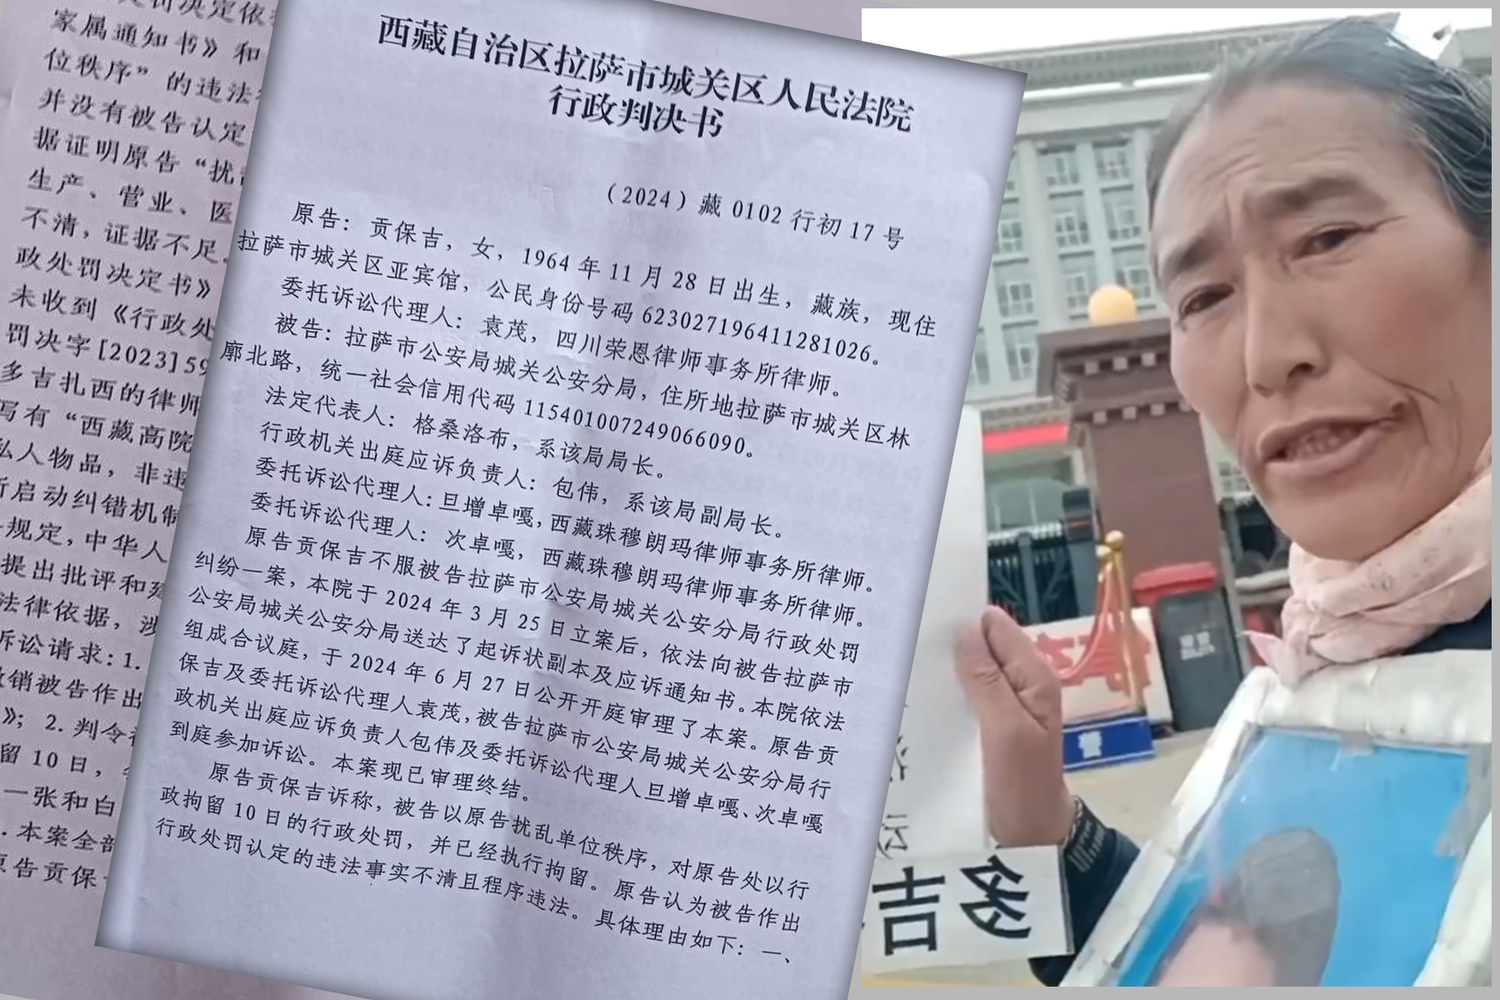 家属通知书》和
位秩序”的违法
并没有被告认定
据证明原告“扰
生产、营业、医
不清，证据不足
政处罚决定书》
未收到《行政处
罚决字[2023]59
多吉扎西的律师
写有“西藏高院
私人物品，非违
启动纠错机制
规定，中华人
提出批评和建
法律依据，涉
诉讼请求：1.
销被告作出
》；2.判令
留10日，
一张和白
.本案全部
原告贡保
西藏自治区拉萨市城关区人民法院
行政判决书
（2024）藏 0102 行初 17 号
原告：贡保吉，女，1964 年 11 月 28 日出生，藏族，现住
拉萨市城关区亚宾馆，公民身份号码 623027196411281026。
委托诉讼代理人：袁茂，四川荣恩律师事务所律师。
被告：拉萨市公安局城关公安分局，住所地拉萨市城关区林
廓北路，统一社会信用代码 11540100724906609​0。
法定代表人：格桑洛布，系该局局长。
行政机关出庭应诉负责人：包伟，系该局副局长。
委托诉讼代理人：旦增卓嘎，西藏珠穆朗玛律师事务所律师。
委托诉讼代理人：次卓嘎，西藏珠穆朗玛律师事务所律师。
原告贡保吉不服被告拉萨市公安局城关公安分局行政处罚
纠纷一案，本院于 2024 年 3 月 25 日立案后，依法向被告拉萨市
公安局城关公安分局送达了起诉状副本及应诉通知书。本院依法
组成合议庭，于 2024 年 6 月 27 日公开开庭审理了本案。原告贡
保吉及委托诉讼代理人袁茂，被告拉萨市公安局城关公安分局行
政机关出庭应诉负责人包伟及委托诉讼代理人旦增卓嘎、次卓嘎
到庭参加诉讼。本案现已审理终结。
原告贡保吉诉称，被告以原告扰乱单位秩序，对原告处以行
政拘留 10 日的行政处罚，并已经执行拘留。原告认为被告作出
行政处罚认定的违法事实不清且程序违法。具体理由如下：一、
警
多吉